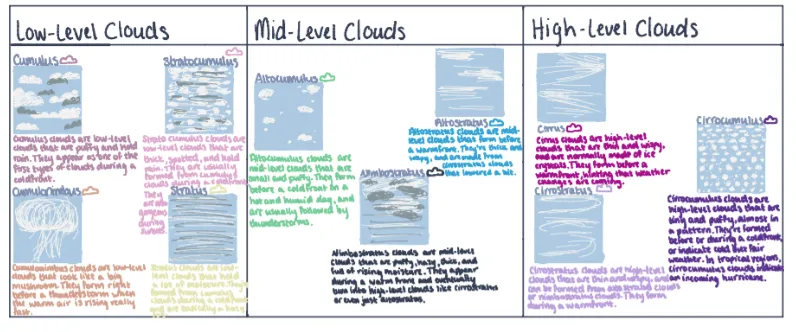 Low-Level Clouds
Cumulus
Cumulus clouds are low-level
clouds that are puffy and hold
rain. They appear as one of the
first types of clouds during a
coldfront.
Stratocumulus
Strato cumulus clouds are
low-level clouds that are
thick, spotted, and hold
rain. They are usually
formed from cumulus
clouds during a coldfront.
They
are also
gorgeous
during
sunset.
Cumulonimbus
Cumulonimbus clouds are low-level
clouds that look like a big
mushroom. They form right
before a thunderstorm when
the warm air is rising really
fast.
Stratus
Stratus clouds are low-
level clouds that hold
a lot of moisture. They're
formed from cumulus
clouds during a coldfront
and are
Mid-Level Clouds
Altocumulus
Altocumulus clouds are
mid-level clouds that are
small and puffy. They form
before a coldfront in a
hot and humid day, and
are usually followed by
thunderstorms.
Altostratus
Altostratus clouds are mid-
level clouds that form before
a warmfront. They're thick and
wispy, and are made from
cirrostratus clouds
that lowered a bit.
Nimbostratus
Nimbostratus clouds are mid-level
clouds that are puffy, hazy, thick, and
full of rising moisture. They appear
during a warm front and eventually
turn into high-level clouds like cirrostratus
or even just altostratus.
High-Level Clouds
Cirrus
Cirrus clouds are high-level
clouds that are thin and wispy,
and are normally made of ice
crystals. They form before a
warmfront, hinting that weather
changes are coming.
Cirrostratus
Cirrostratus clouds are high-level
clouds that are thin and wispy, and
can be formed from altostratus clouds
or nimbostratus clouds. They form
during a warmfront.
Cirrocumulus
Cirrocumulus clouds are
high-level clouds that are
tiny and puffy, almost in
a pattern. They're formed
before or during a coldfront,
or indicate cold but fair
weather. In tropical regions,
Cirrocumulus clouds indicate
an incoming hurricane.